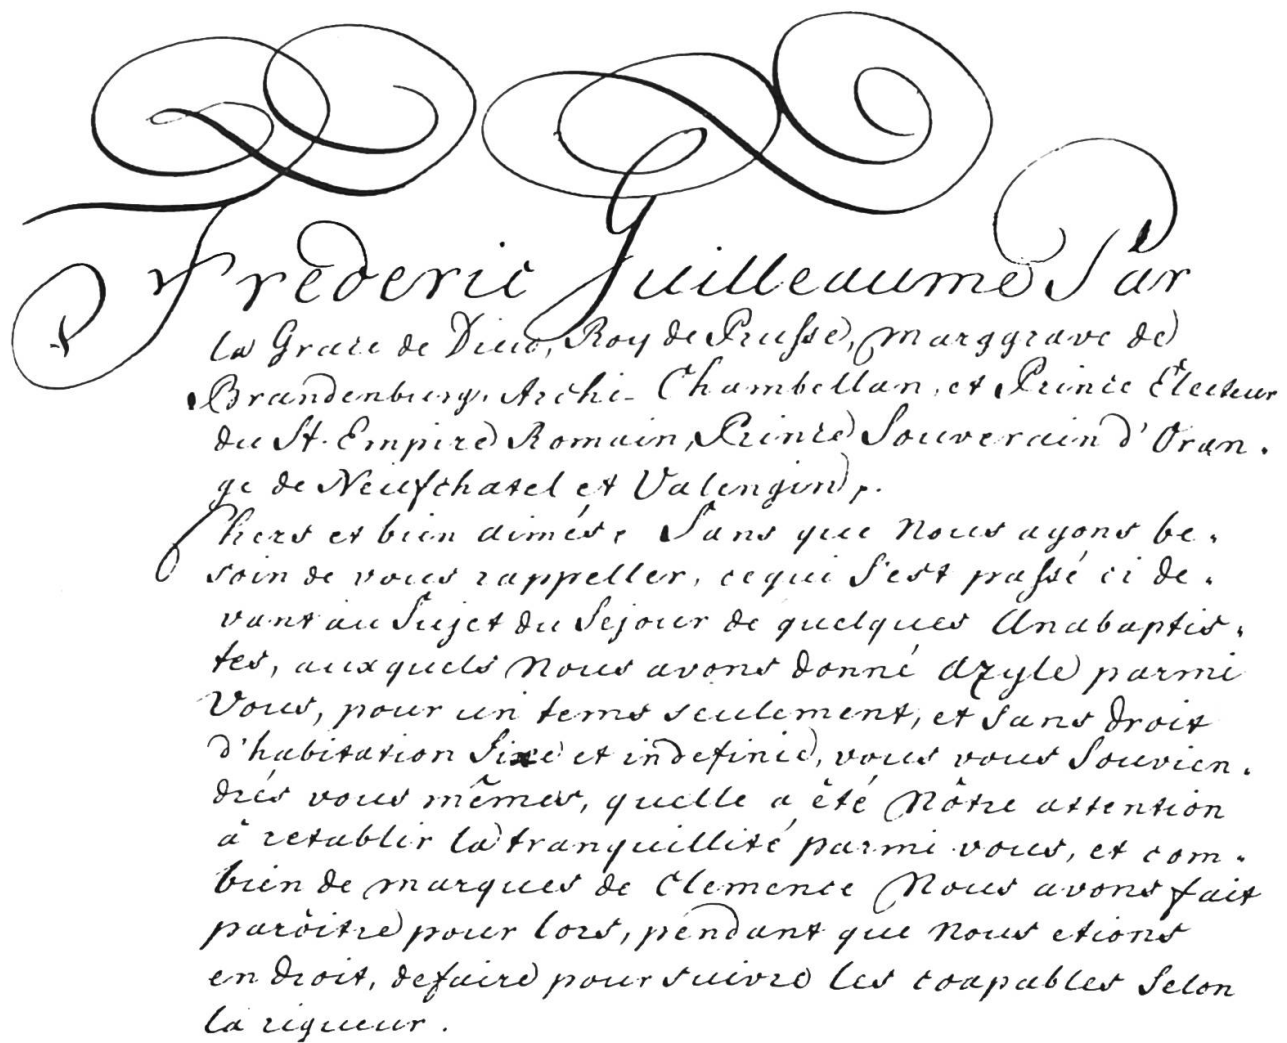 Frederic Guilleaume Par
la Grace de Dieu, Roy de Prusse, Marggrave de
Brandenburg, Archi-Chambellan, et Prince Electeur
du St. Empire Romain, Prince Souverain d'Oran-
ge de Neufchatel et Valengin,.
Chers et bien aimés, Sans que Nous ayons be-
soin de vous rappeller, ce qui s'est passé ci de-
vant au Sujet du Sejour de quelques Anabaptis-
tes, auxquels Nous avons donné azyle parmi
Vous, pour un tems seulement, et sans droit
d'habitation fixe et indefinie, vous vous Souvien-
drés vous mêmes, quelle a été Nôtre attention
à retablir la tranquillité parmi vous, et com-
bien de marques de Clemence Nous avons fait
parôitre pour lors, pendant que Nous etions
en droit, de faire poursuivre les coupables Selon
la rigueur.